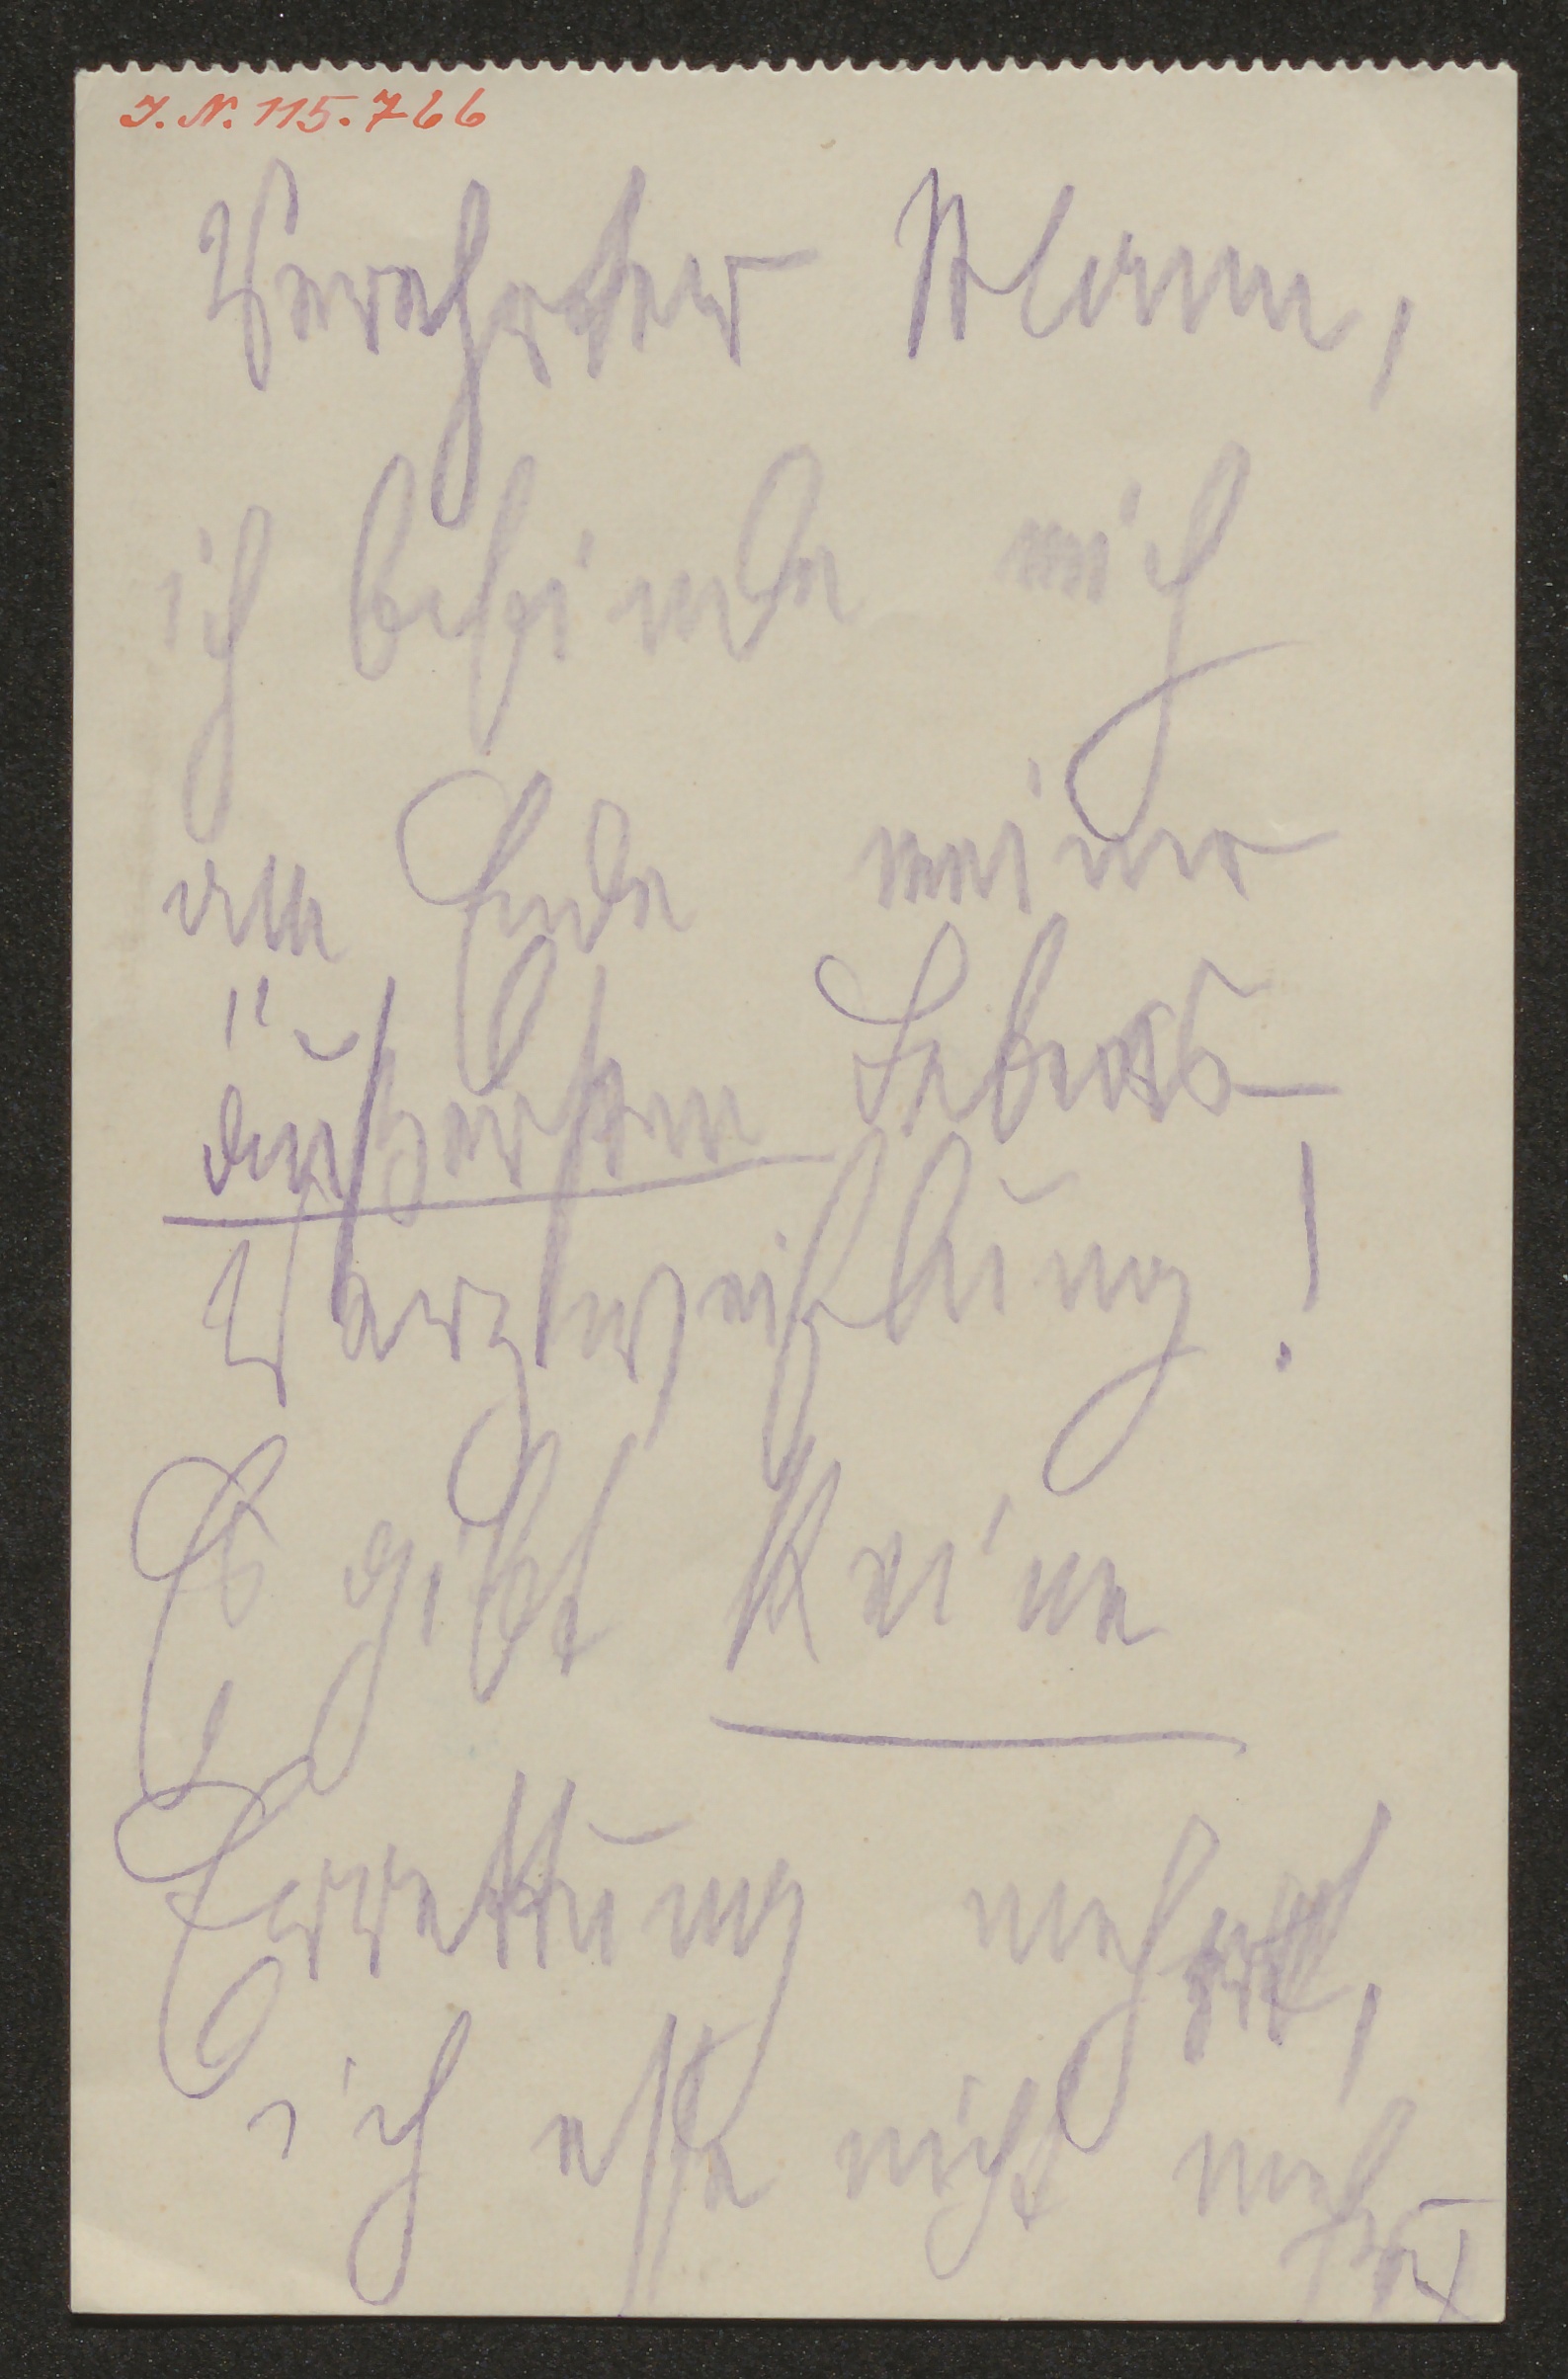 J. N. 115.766
Verehrter Mann,
ich befinde mich
am Ende meiner
äußersten Lebens-
Verzweiflung!
Es gibt keine
Errettung mehr,
ich esse nicht mehr,